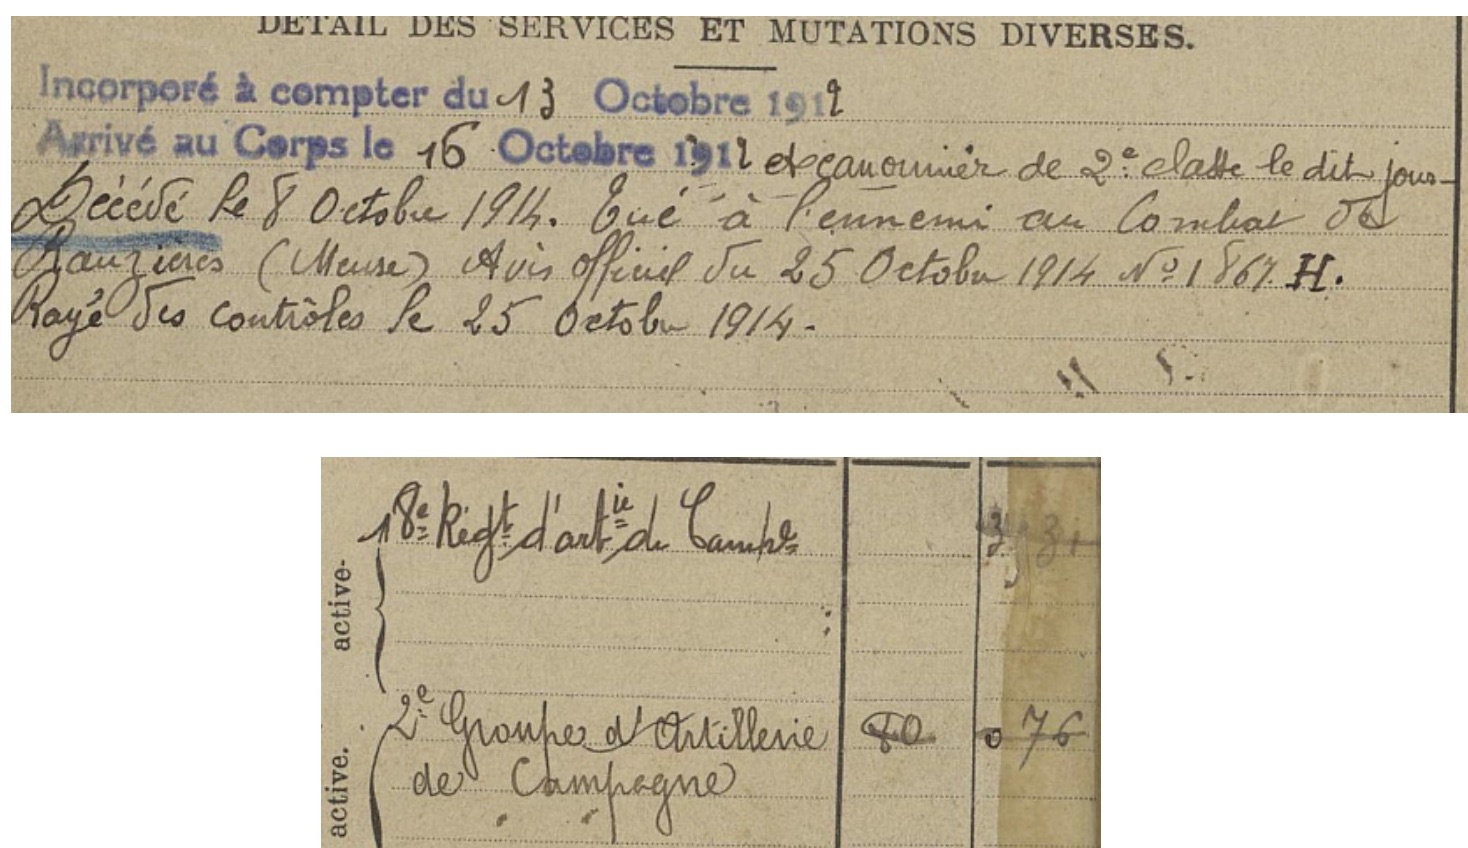 DÉTAIL DES SERVICES ET MUTATIONS DIVERSES.
Incorporé à compter du 13 Octobre 1912
Arrivé au Corps le 16 Octobre 1912 et canonnier de 2e classe le dit jour
Décédé le 8 Octobre 1914. Tué à l'ennemi au Combat de
Ranzières (Meuse) Avis officiel du 25 Octobre 1914 No 1867. H.
Rayé des contrôles le 25 Octobre 1914.
18e Régt d'artie de Campe
active-
2e Groupe d'Artillerie 80 076
de Campagne
active.